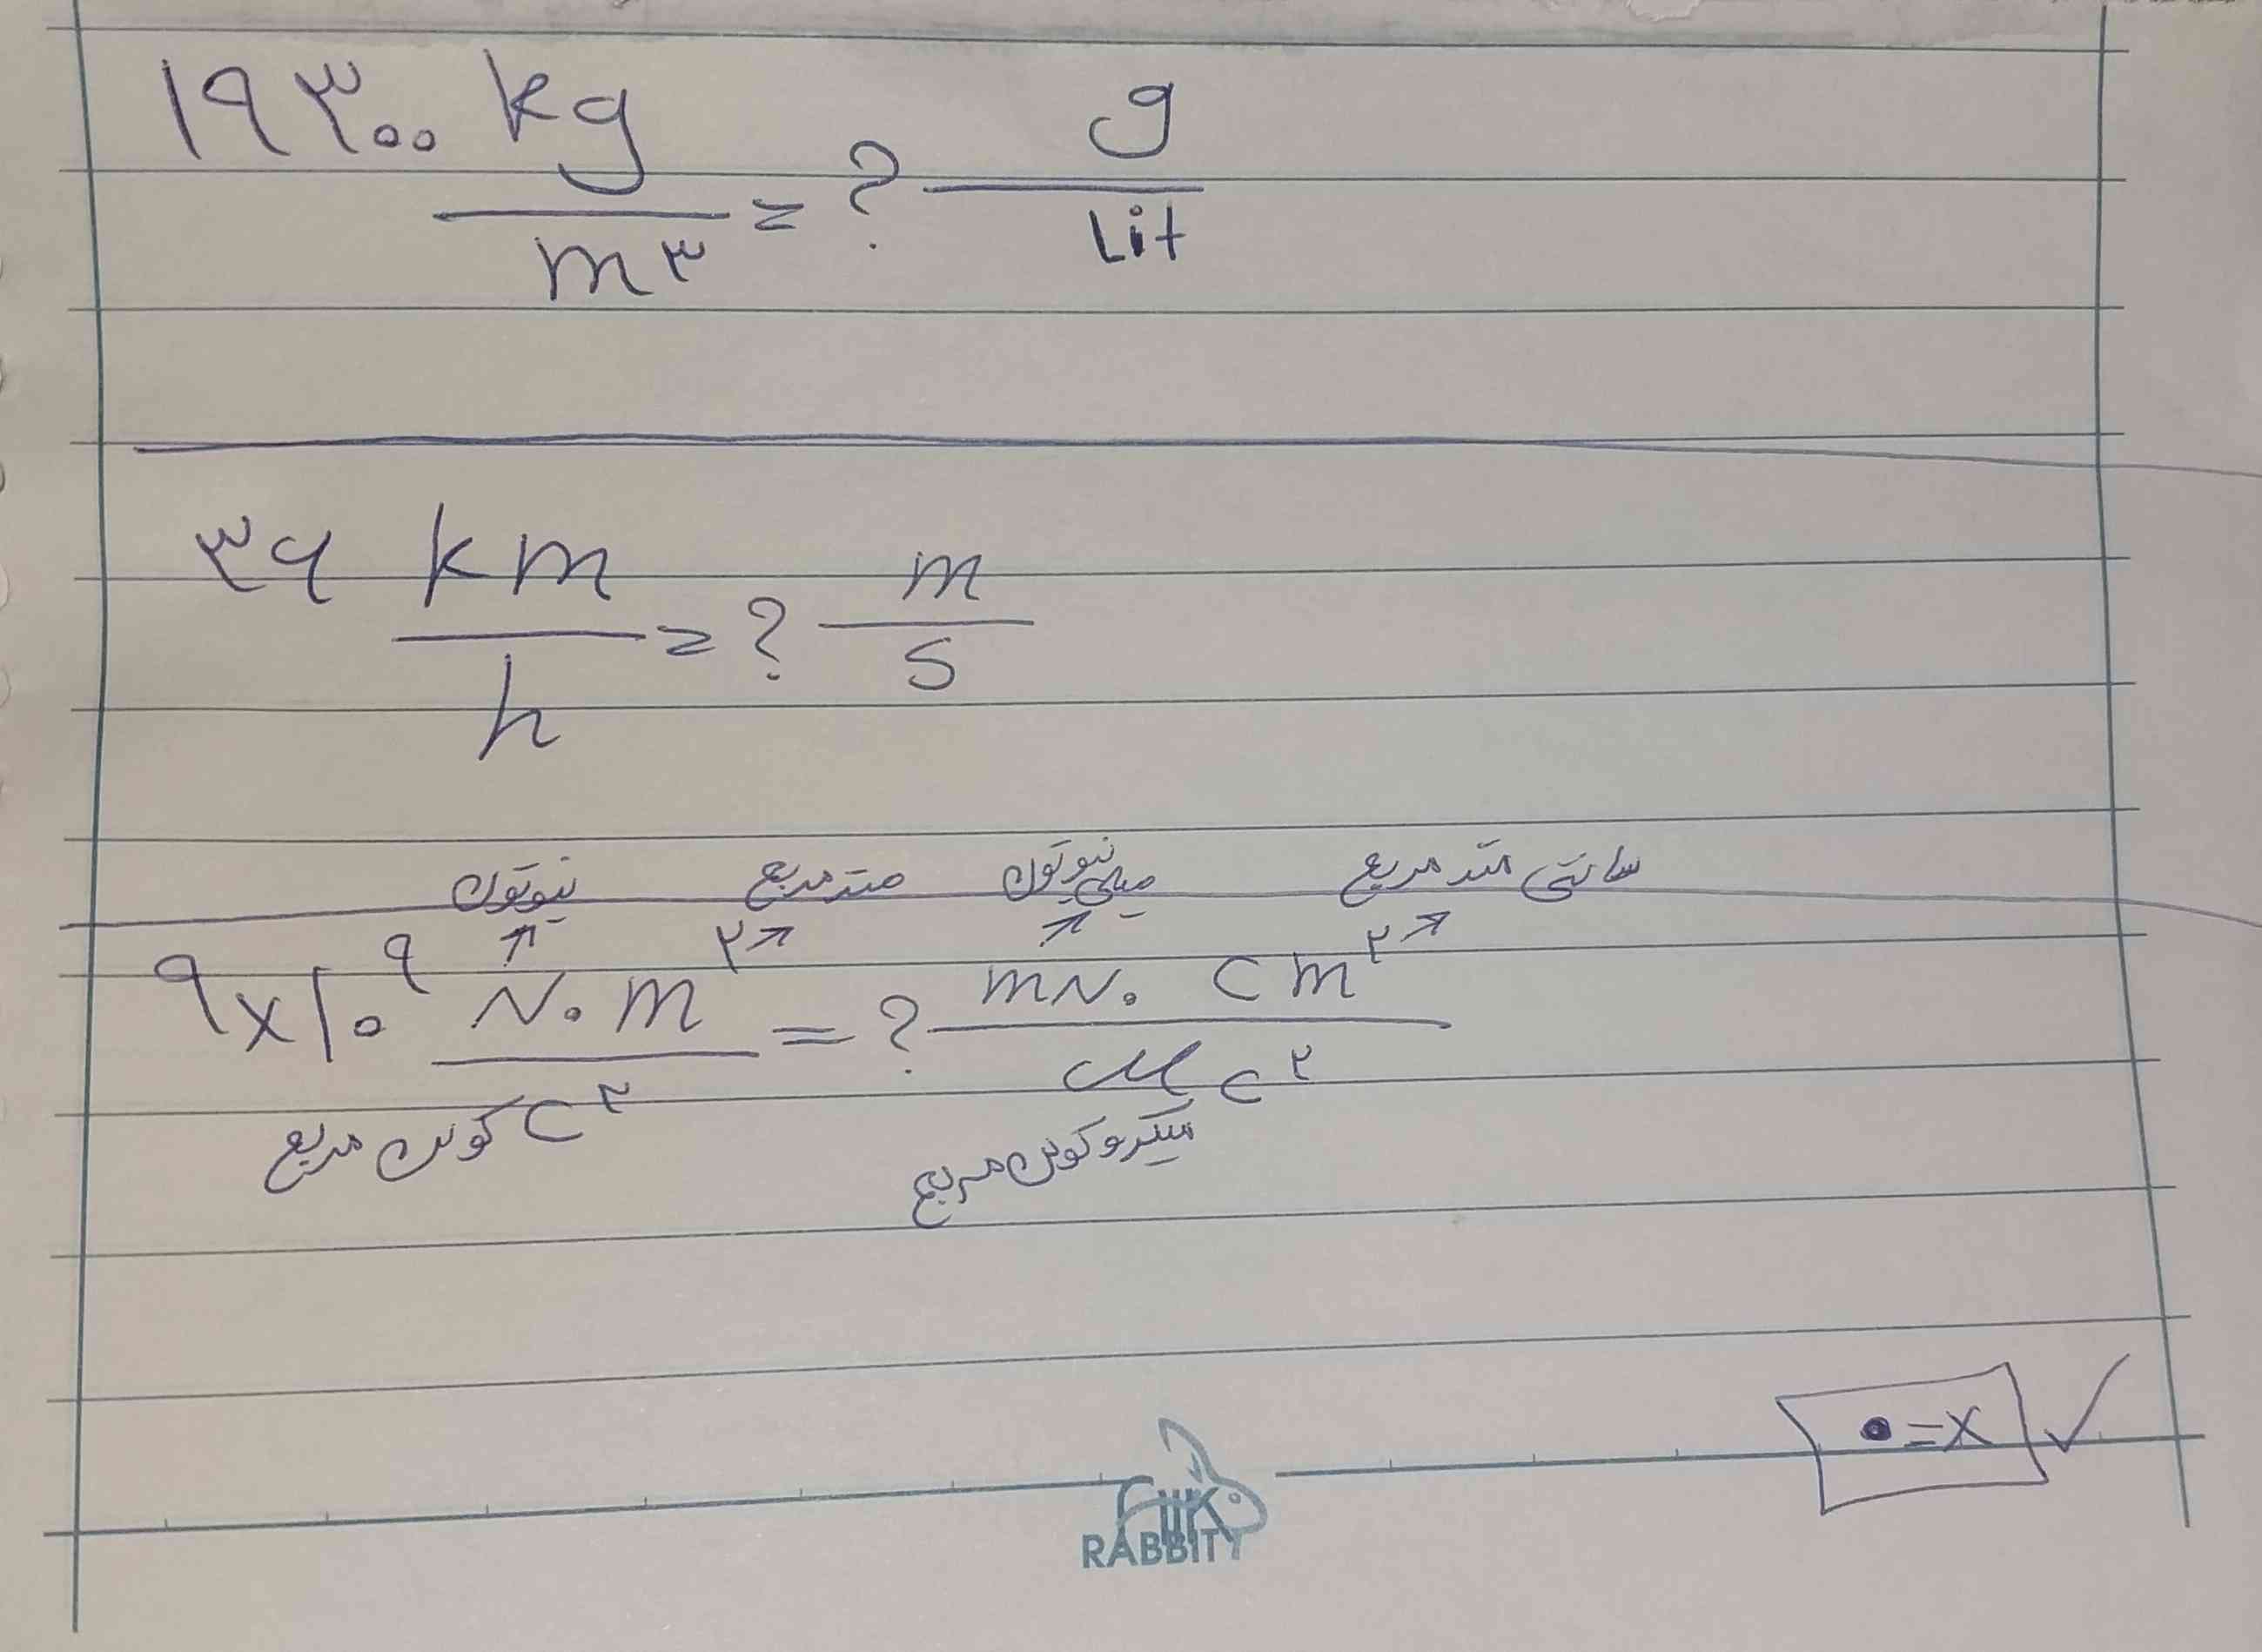 ۱۹۳۰۰ kg/m۳ = ? g/Lit
۳۶ km/h = ? m/s
نیوتون متر مربع میلی نیوتون سانتی متر مربع
۹×۱۰^۹ N.m^۲/C^۲ = ? mN.cm^۲/μC^۲
کولن مربع میکروکولن مربع
•=×✓
RABBIT